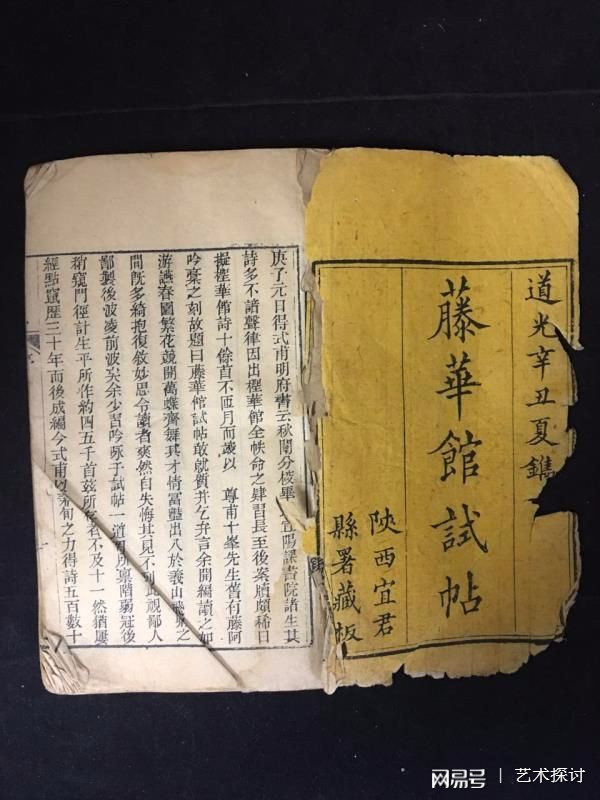 道光辛丑夏鐫
藤華館試帖
陝西宜君
縣署藏板
庚子元日得式甫明府書云秋闈分校畢宜陽課書院諸生其
詩多不諳聲律因出樫華館全帙命之肄習長至後案牘頗稀日
擬樫華館詩十餘首不匝月而以 尊甫十峯先生舊有藤阿
吟藁之刻故題曰藤華館試帖敢就質并乞弁言余開編讀之如
游讌春園繁花競開萬蝶齊舞其才情富豔出入於義山飛卿之
間旣多綺抱復敘妙思令讀者爽然自失悔其見不到此視鄙人
鄙製後波凌前波矣余少習吟咏于試帖一道所稟弱冠後
稍窺門徑計生平所作約四五千首茲所存者不及十一然猶屢
經點竄歷三十年而後成編今式甫以旬之力得詩五百數十
网易号 | 艺术探讨